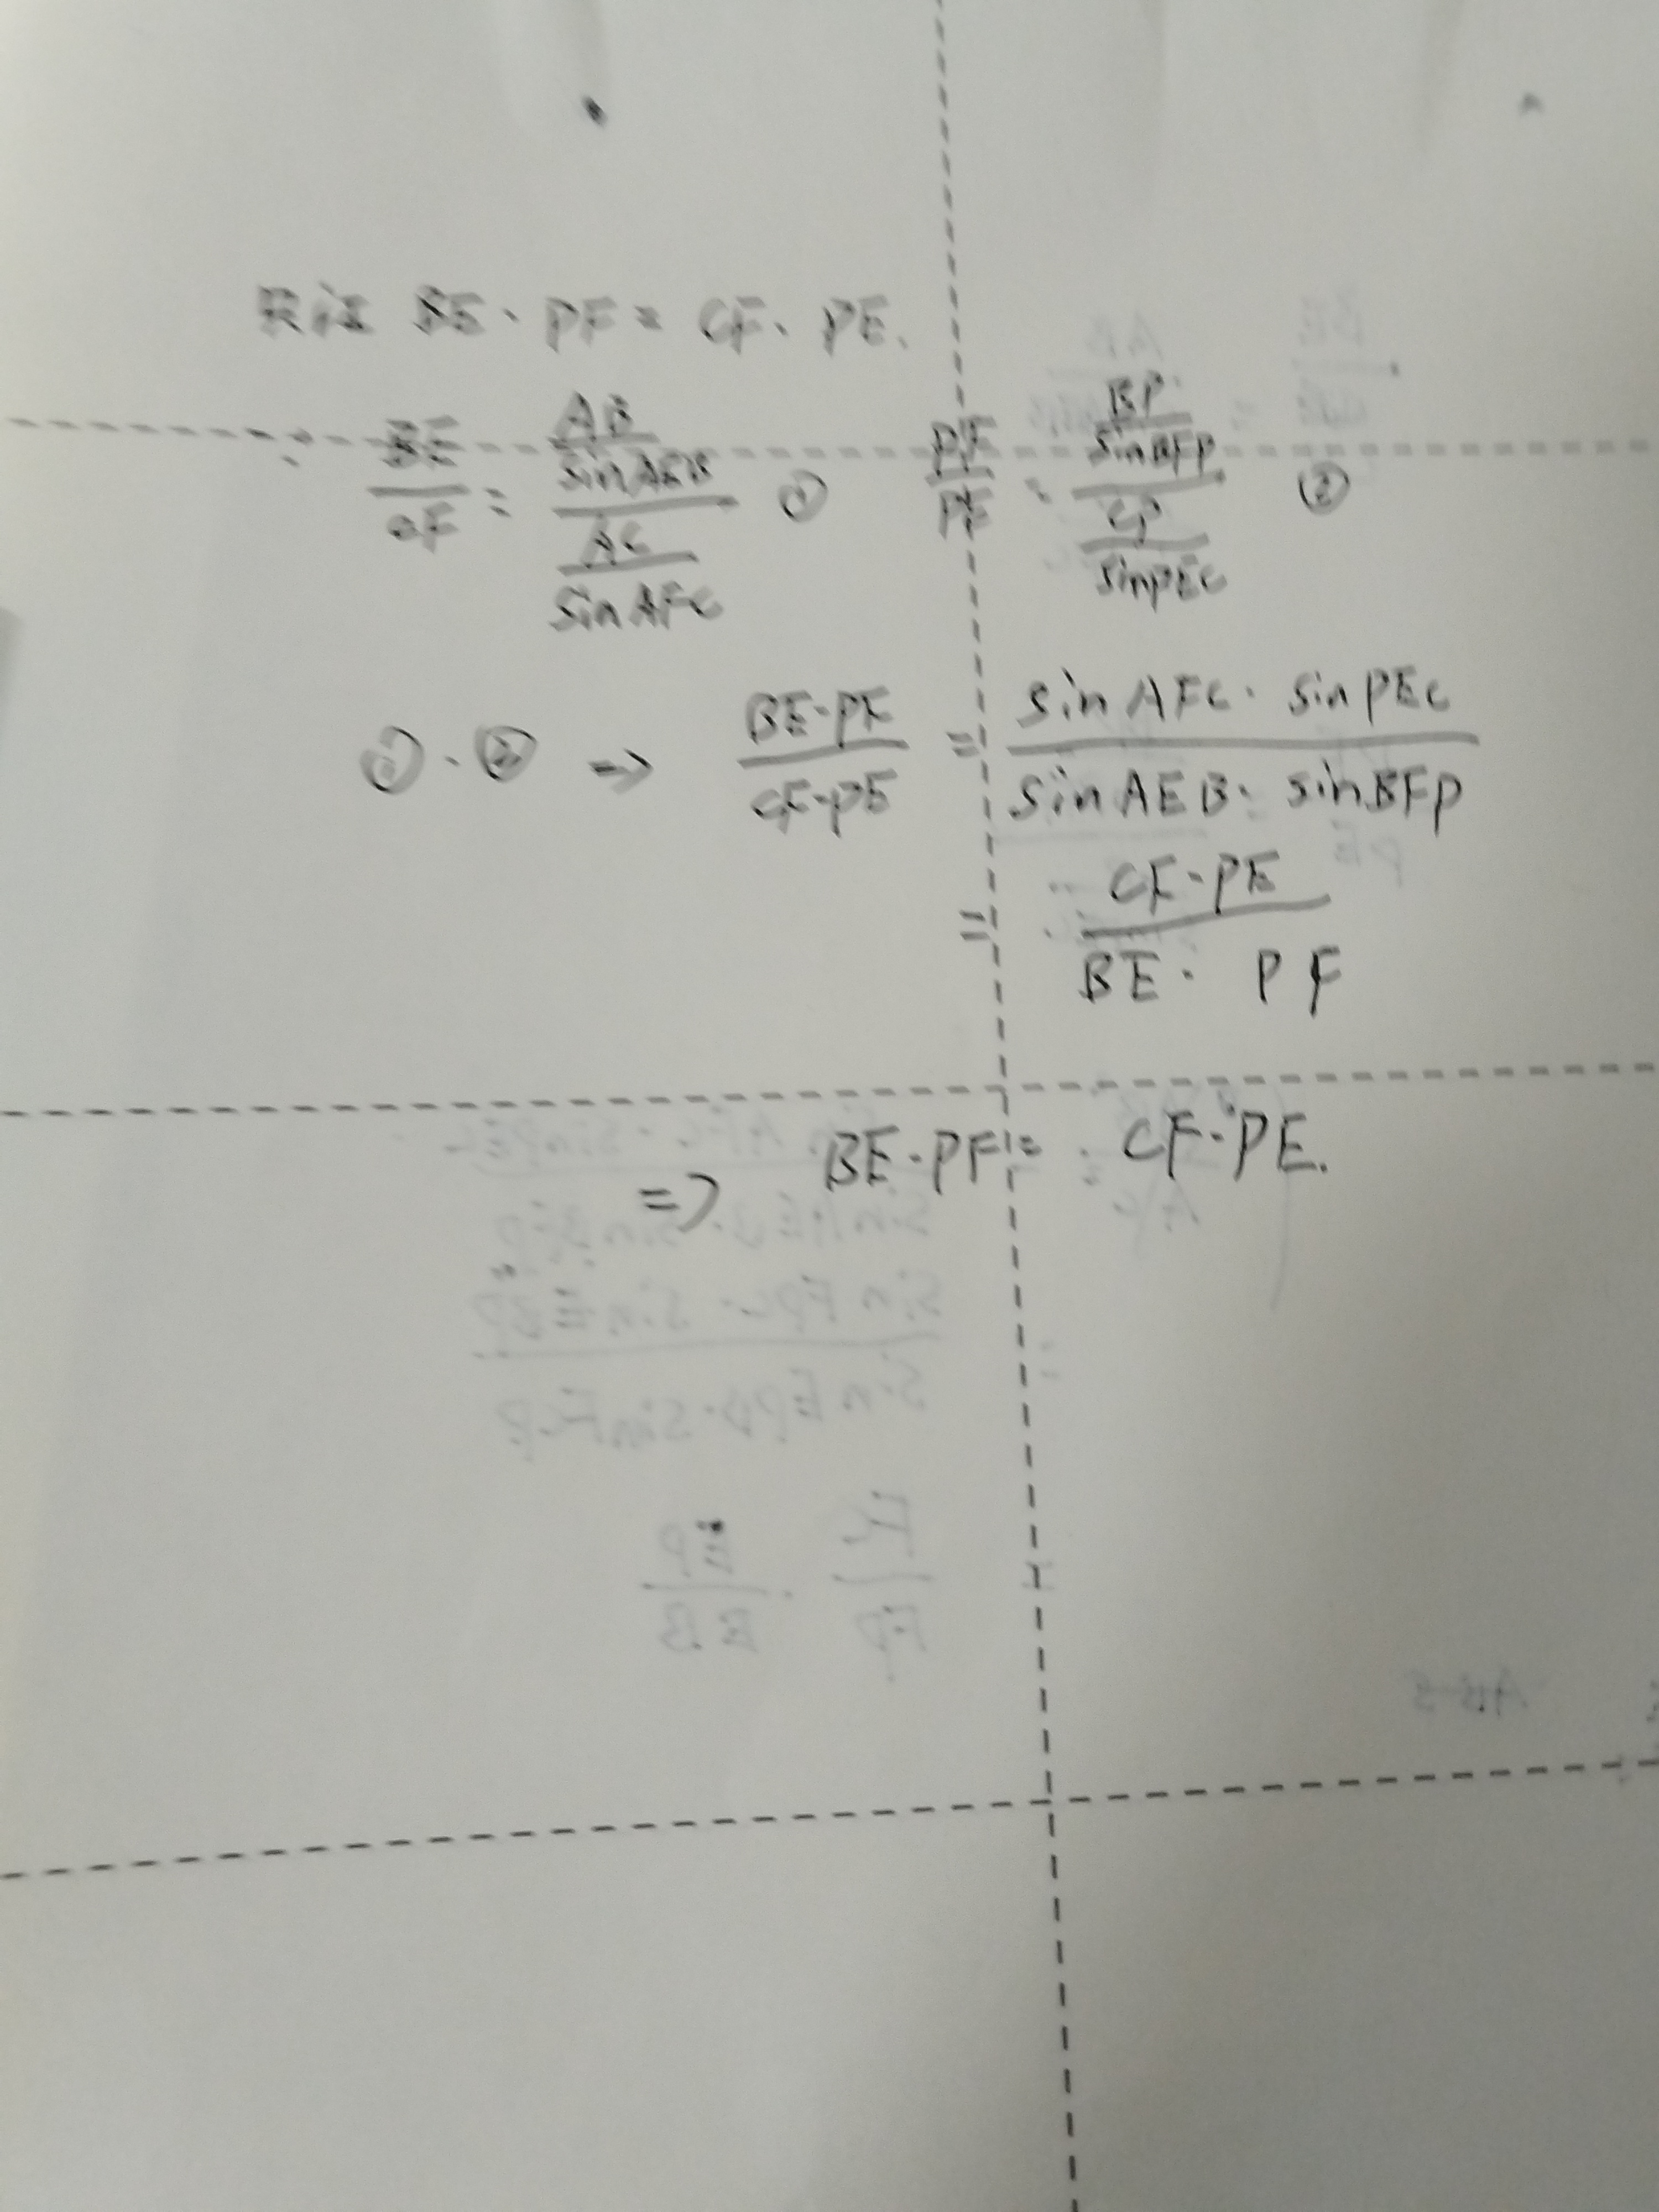 只证 BE · PF = CF · PE.
∵ BE/CF = (AB/sinAEB)/(AC/sinAFC) ① PF/PE = (BP/sinBFP)/(CP/sinPEC) ②
① · ② => BE·PF/CF·PE = sinAFC · sinPEC/sinAEB · sinBFP
= CF·PE/BE · PF
=> BE·PF = CF·PE.